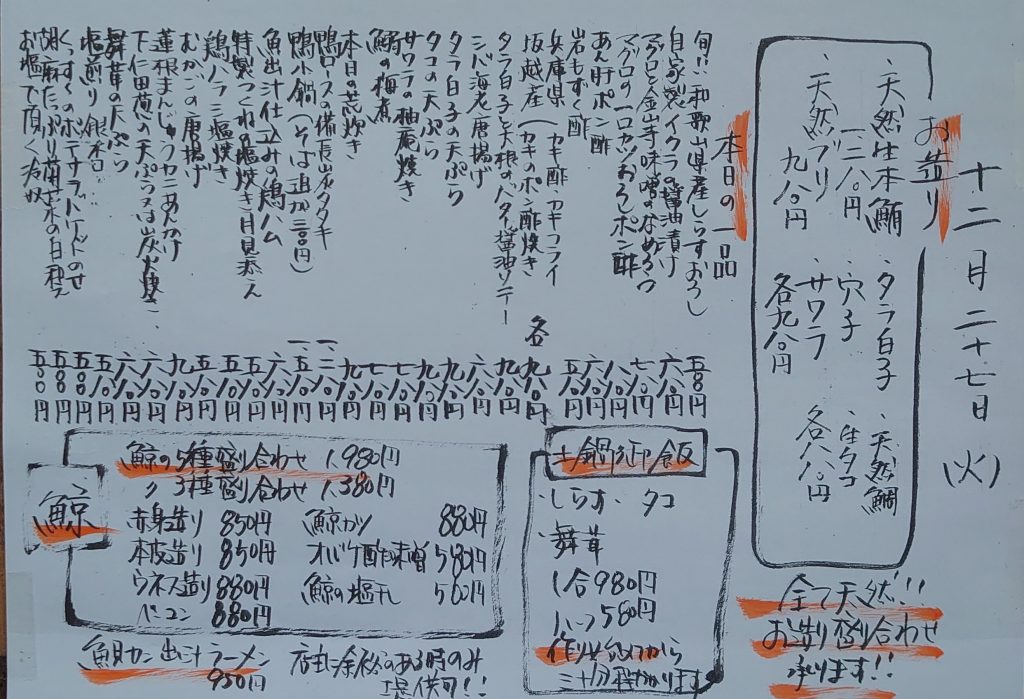 十二月二十七日(火)
お造り
・天然生本鮪
一二八〇円
・天然ブリ
九八〇円
・タラ白子
・穴子
・サワラ
各九八〇円
・天然鯛
・生タコ
各八八〇円
全て天然!!
お造り盛り合わせ
承ります!!
本日の一品
旬!!和歌山県産しらすおろし 五八〇円
自家製イクラの醤油漬け 六八〇円
マグロと金山寺味噌のなめろう 七八〇円
マグロの一口カツおろしポン酢 八八〇円
あん肝ポン酢 六八〇円
岩もずく酢 五八〇円
兵庫県(カキ酢・カキフライ
坂越産(カキのポン酢焼き 各九八〇円
タラ白子と大根のバター醤油ソテー 九八〇円
シバ海老唐揚げ 六八〇円
タラ白子の天ぷら 九八〇円
タコの天ぷら
サワラの柚庵焼き
鰯の梅煮
本日の荒炊き
鴨ロースの備長炭タタキ
鴨小鍋(そば追加三〇〇円)
魚出汁仕込みの鶏ハム
特製つくねの塩焼き月見添え
鶏ハラミ塩焼き
むかごの唐揚げ
蓮根まんじゅうカニあんかけ
下仁田葱の天ぷら又は炭火焼き
舞茸の天ぷら
塩煎り銀杏
くんせいのポテサラバゲットのせ
胡麻たっぷり菊菜の白和え
お塩で頂く冷奴
土鍋御飯
・しらす・タコ
・舞茸
1合980円
ハーフ580円
作り始めてから
三十分程かかります
鯨
鯨の5種盛り合わせ 1,980円
〃 3種盛り合わせ 1,380円
赤身造り 850円
本皮造り 850円
ウネス造り 880円
ベーコン 880円
鯨カツ 880円
オバケ酢味噌 580円
鯨の塩干 580円
魚貝出汁ラーメン
950円
店主に余裕のある時のみ
提供可!!